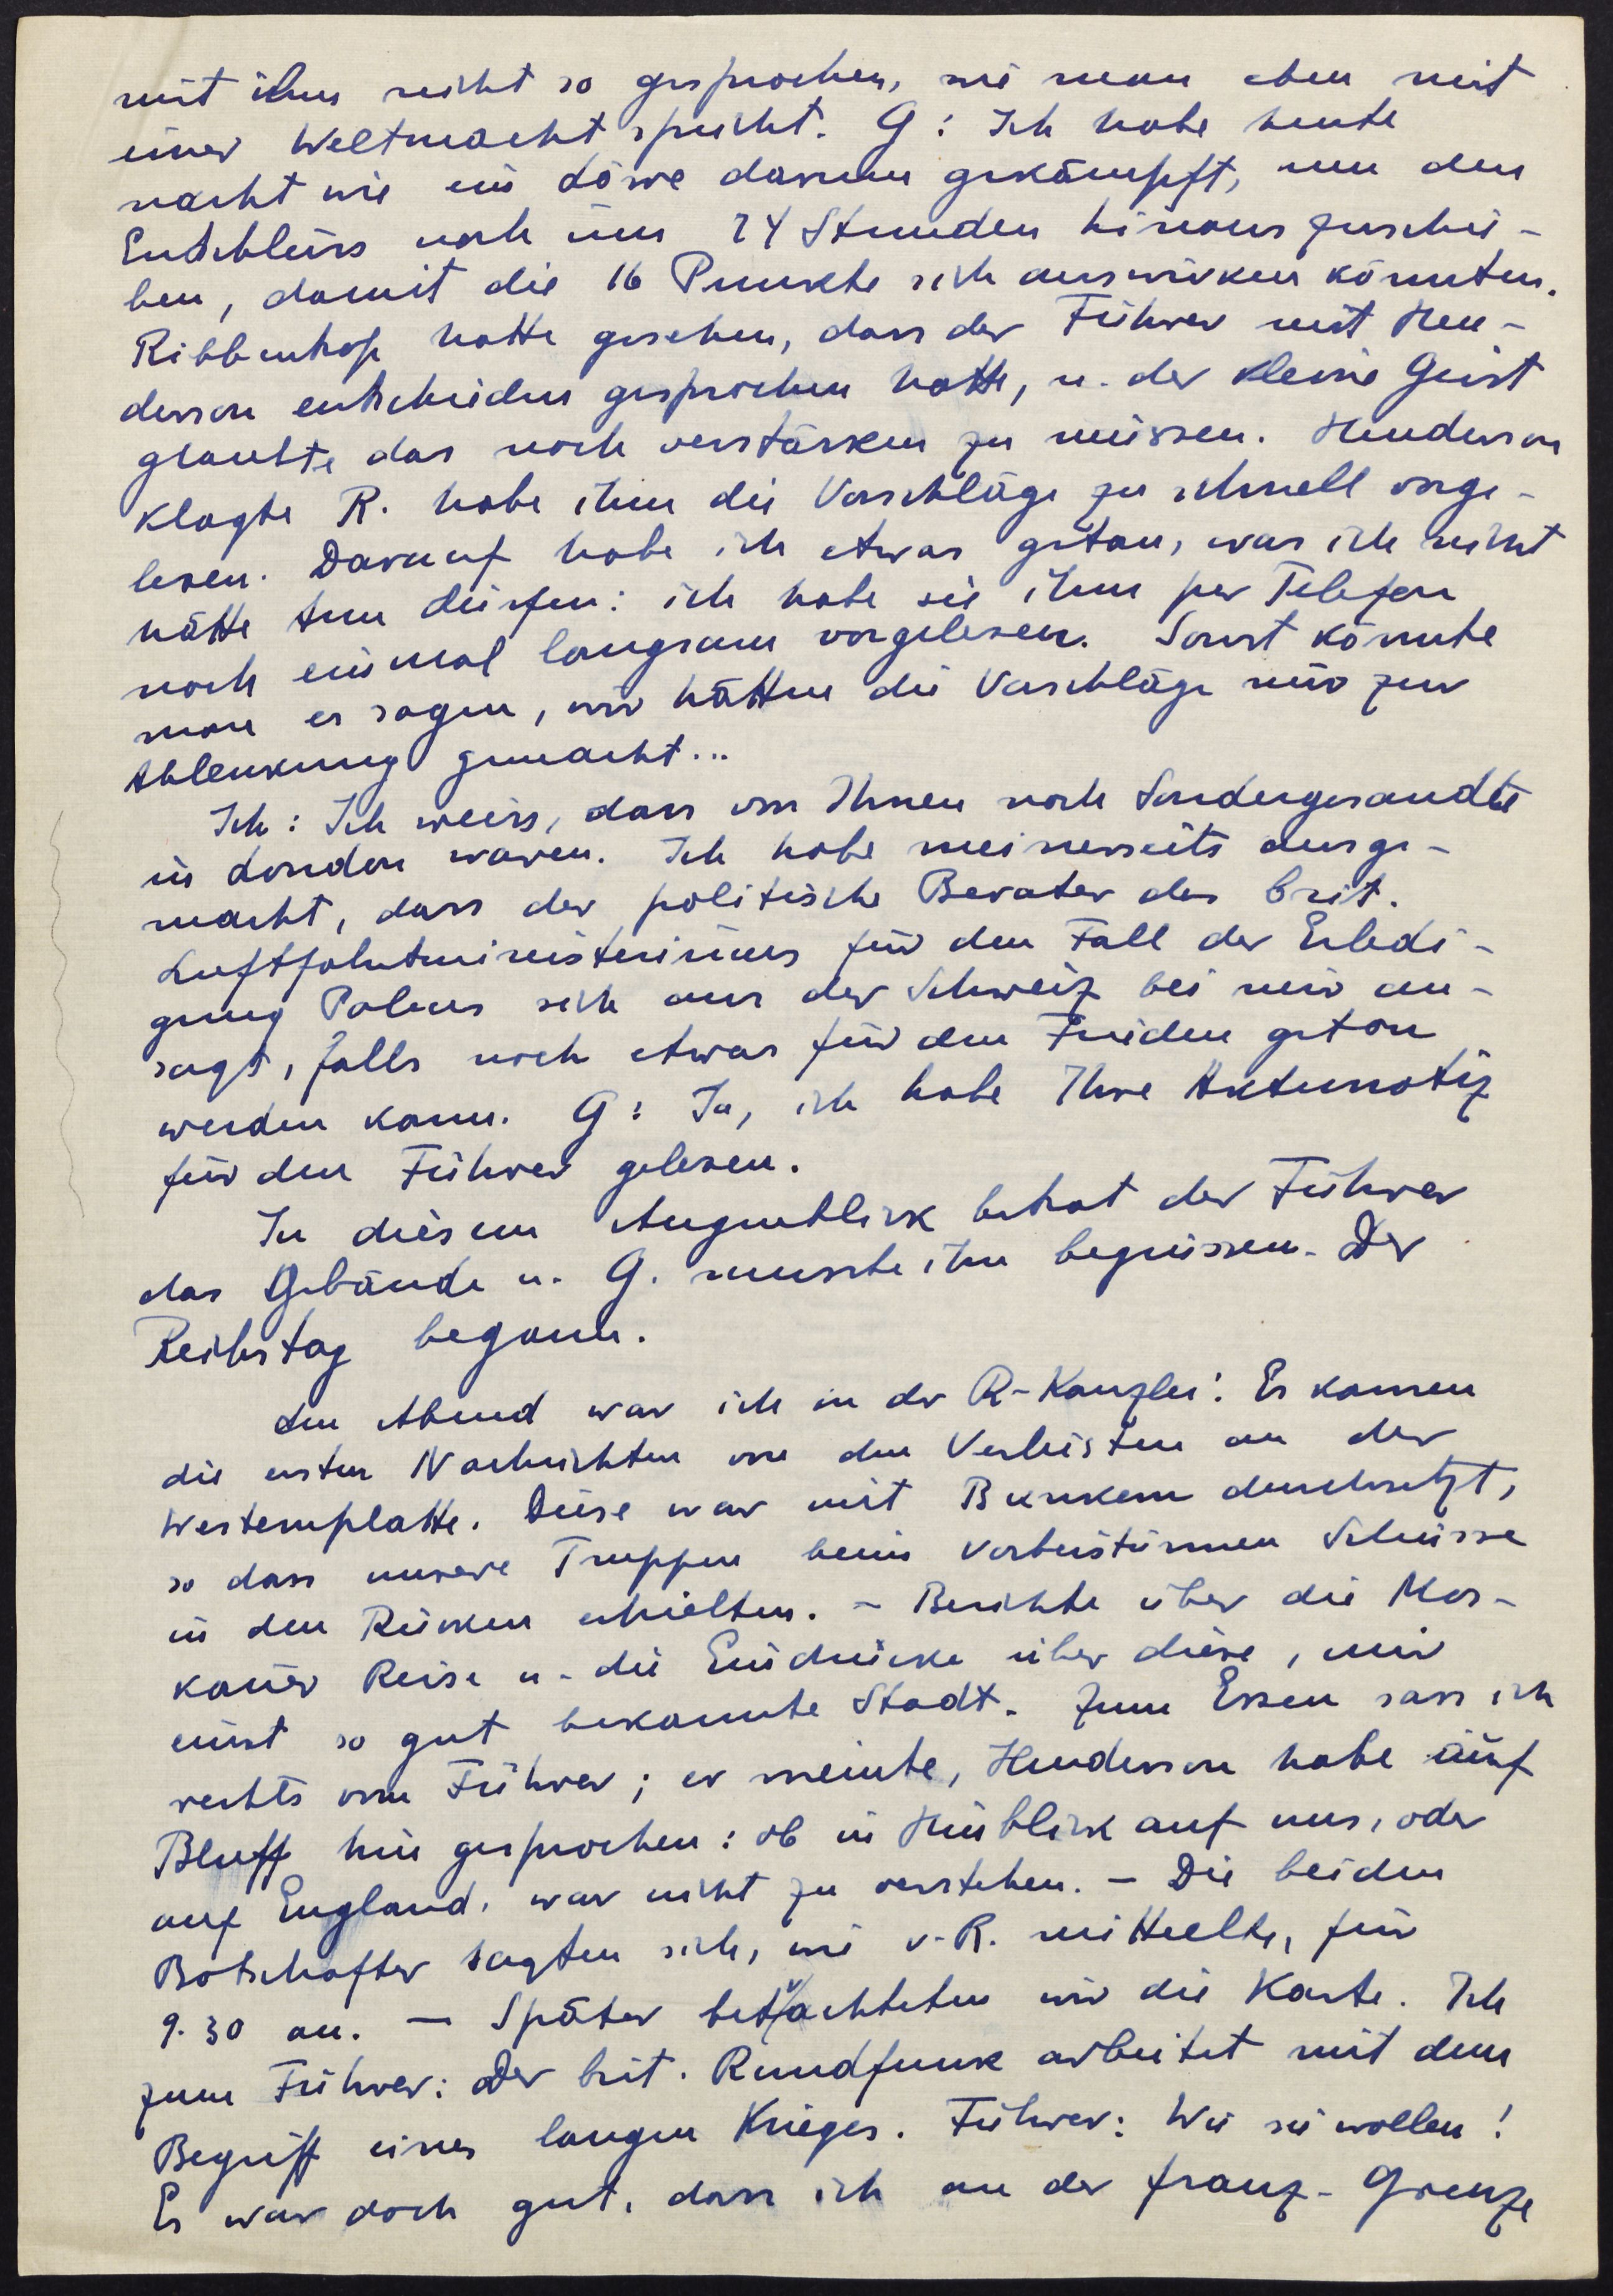 mit ihm nicht so gesprochen, wie man eben mit
einer Weltmacht spricht. G: Ich habe heute
nacht wie ein Löwe darum gekämpft, um den
Entschluss noch um 24 Stunden hinauszuschie-
ben, damit die 16 Punkte sich auswirken könnten.
Ribbentrop hatte gesehen, dass der Führer mit Hen-
derson entschieden gesprochen hatte, u. der kleine Geist
glaubte das noch verstärken zu müssen. Henderson
klagte R. habe ihm die Vorschläge zu schnell vorge-
lesen. Darauf habe ich etwas getan, was ich nicht
hätte tun dürfen: ich habe sie ihm per Telefon
noch einmal langsam vorgelesen. Sonst könnte
man es sagen, wir hätten die Vorschläge nur zur
Ablenkung gemacht...
Ich: Ich weiss, dass von Ihnen noch Sondergesandte
in London waren. Ich habe meinerseits ausge-
macht, dass der politische Berater des brit.
Luftfahrtministeriums für den Fall der Erledi-
gung Polens sich aus der Schweiz bei mir an-
sagt, falls noch etwas für den Frieden getan
werden kann. G: Ja, ich habe Ihre Aktennotiz
für den Führer gelesen.
In diesem Augenblick betrat der Führer
das Gebäude u. G. musste ihn begrüssen. Der
Reichstag begann.
Am Abend war ich in der R-Kanzlei: Es kamen
die ersten Nachrichten von den Verlusten an der
Westernplatte. Diese war mit Bunkern durchsetzt,
so dass unsere Truppen beim Vorbeistürmen Schüsse
in den Rücken erhielten. - Berichte über die Mos-
kauer Reise u. die Eindrücke über diese, mir
einst so gut bekannte Stadt. Zum Essen sass ich
rechts vom Führer; er meinte, Henderson habe auf
Bluff hin gesprochen: ob in Hinblick auf uns, oder
auf England, war nicht zu verstehen. - Die beiden
Botschafter sagten sich, wie v. R. mitteilte, für
9.30 an. - Später betrachteten wir die Karte. Ich
zum Führer: Der brit. Rundfunk arbeitet mit dem
Begriff eines langen Krieges. Führer: Wie sie wollen!
Es war doch gut, dass ich an der franz. Grenze